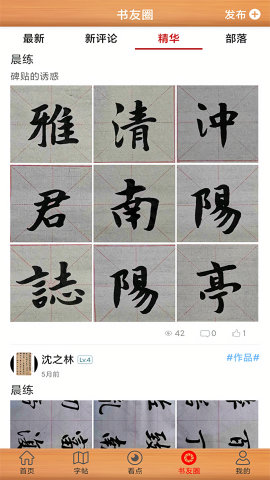 书友圈 发布
最新 新评论 精华 部落
晨练
碑贴的诱惑
雅 清 沖
君 南 陽
誌 陽 亭
42 0 1
沈之林 Lv.4 #作品#
5月前
晨练
首页 字帖 看点 书友圈 我的